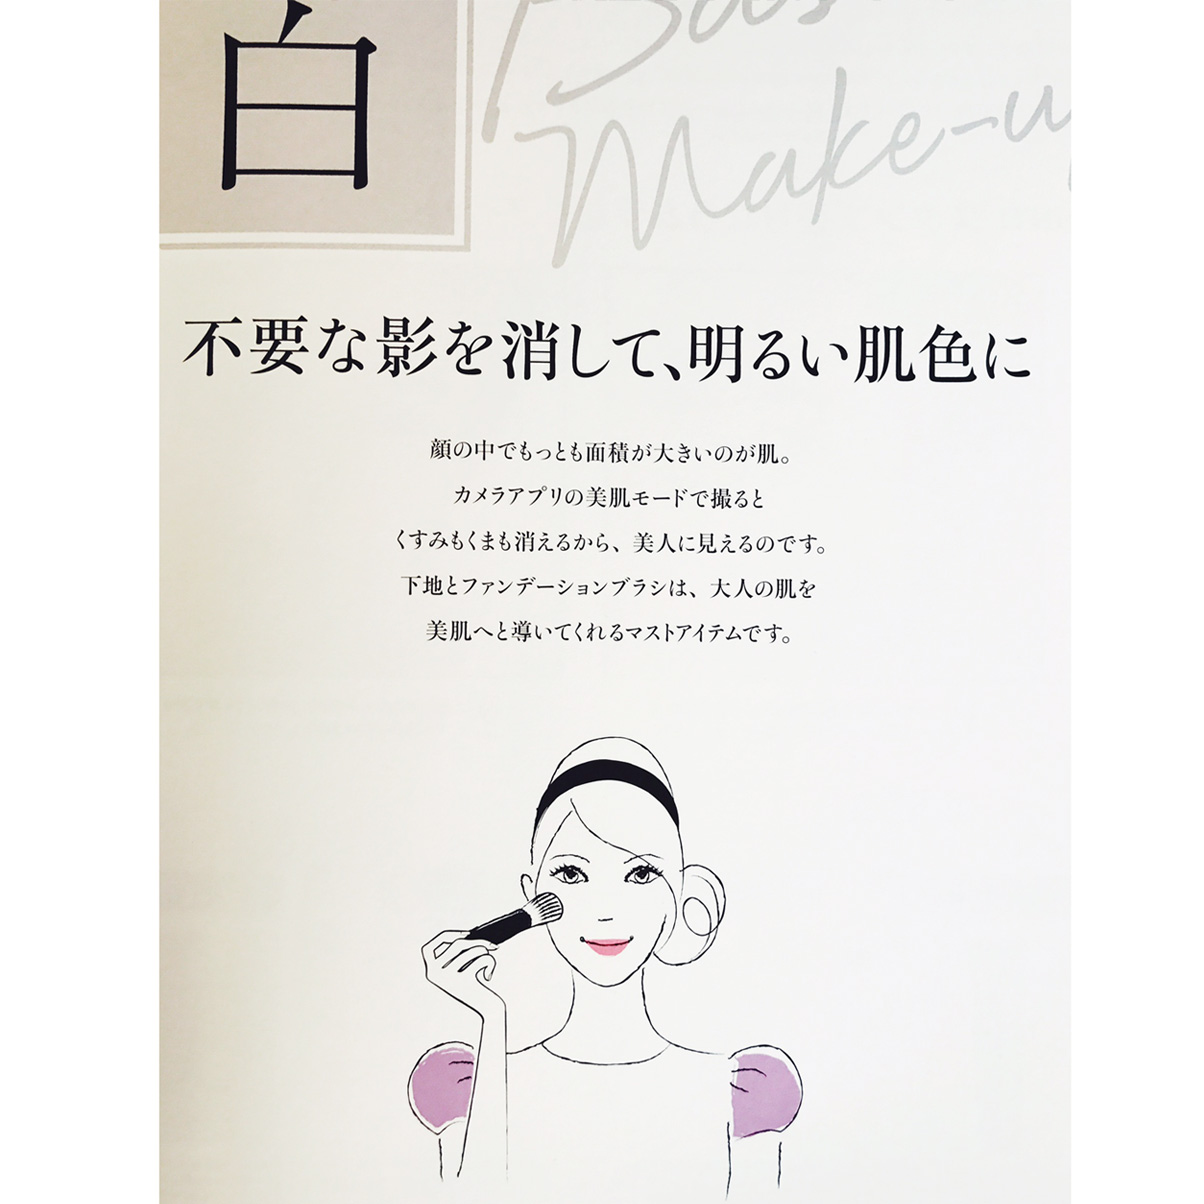 白
Make-u
不要な影を消して、明るい肌色に
顔の中でもっとも面積が大きいのが肌。
カメラアプリの美肌モードで撮ると
くすみもくまも消えるから、美人に見えるのです。
下地とファンデーションブラシは、大人の肌を
美肌へと導いてくれるマストアイテムです。